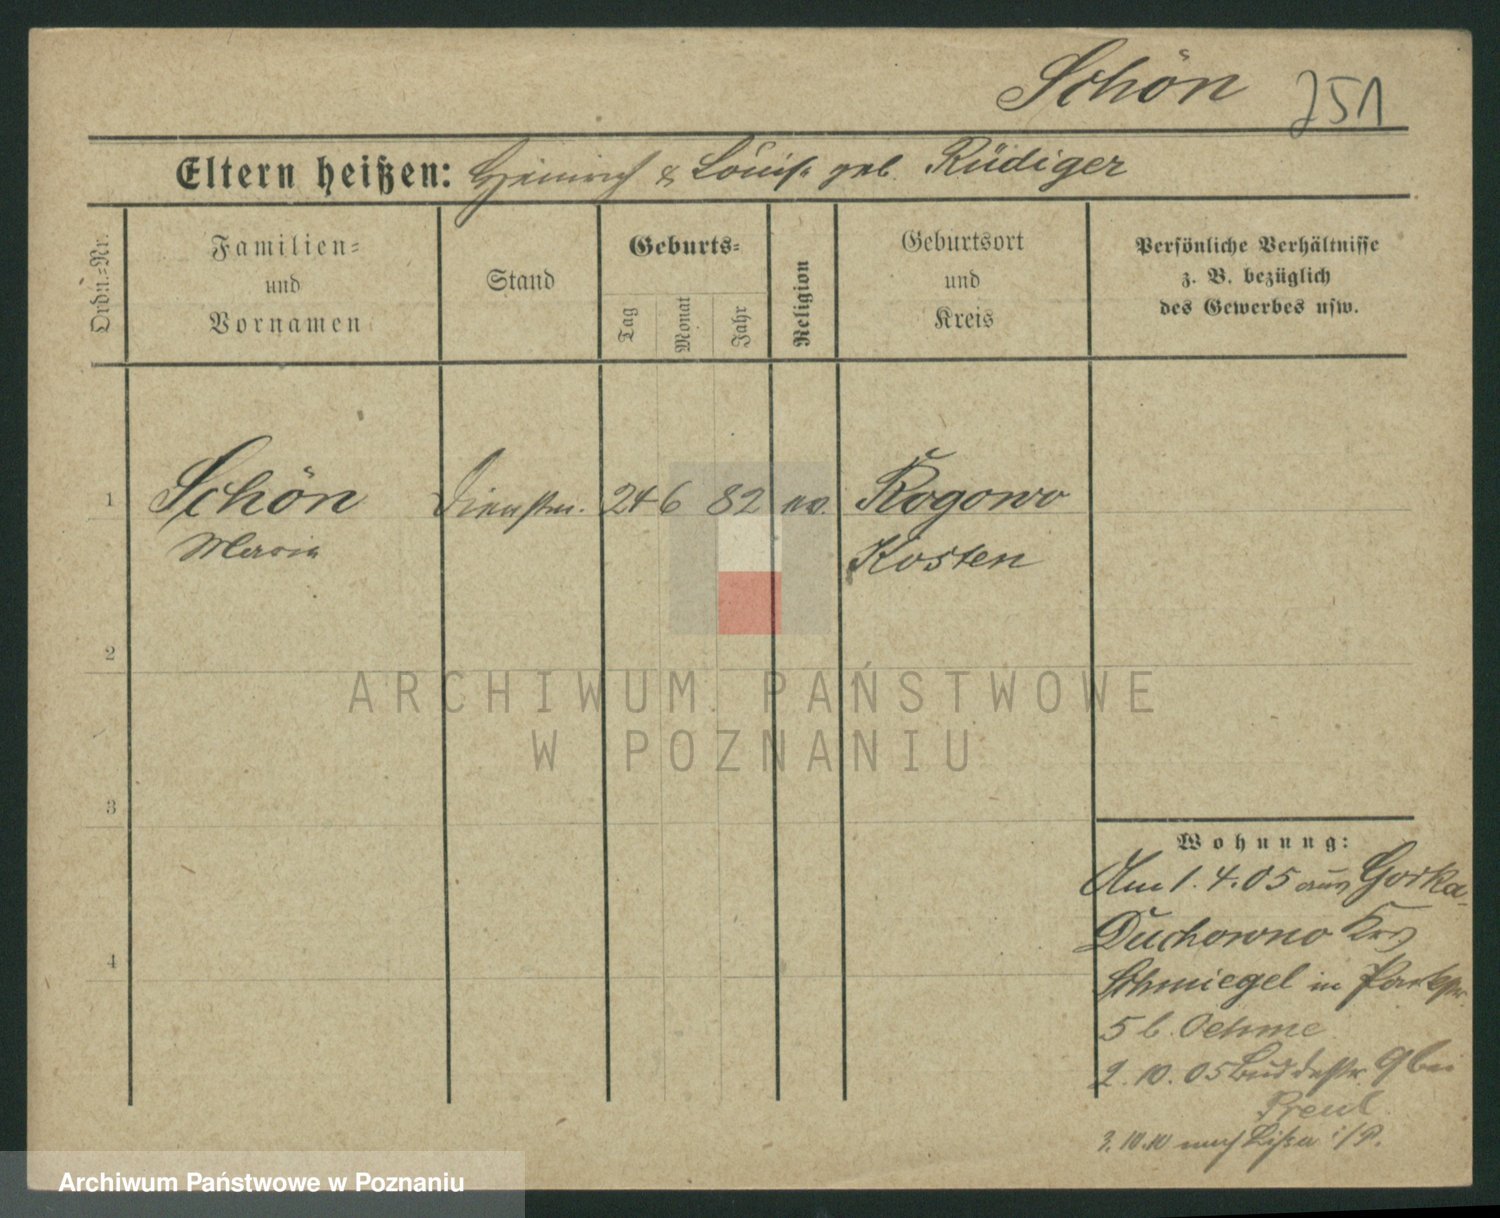 Schön 751
Eltern heißen: Heinrich & Louise geb. Rüdiger
Ordn.-Nr.
Familien-
und
Vornamen
Stand
Geburts-
Tag
Monat
Jahr
Religion
Geburtsort
und
Kreis
Persönliche Verhältnisse
z. B. bezüglich
des Gewerbes usw.
1 Schön Dienstm. 24 6 82 ev. Rogowo
Maria Kosten
2
ARCHIWUM PAŃSTWOWE
W POZNANIU
3
Wohnung:
Am 1.4.05 aus Gorka-
Duchowno Krs
4
Schmiegel in Parkstr.
5 b. Oehme
2.10.05 Buddestr. 9 bei
3.10.10 nach Lissa i/P.
Archiwum Państwowe w Poznaniu